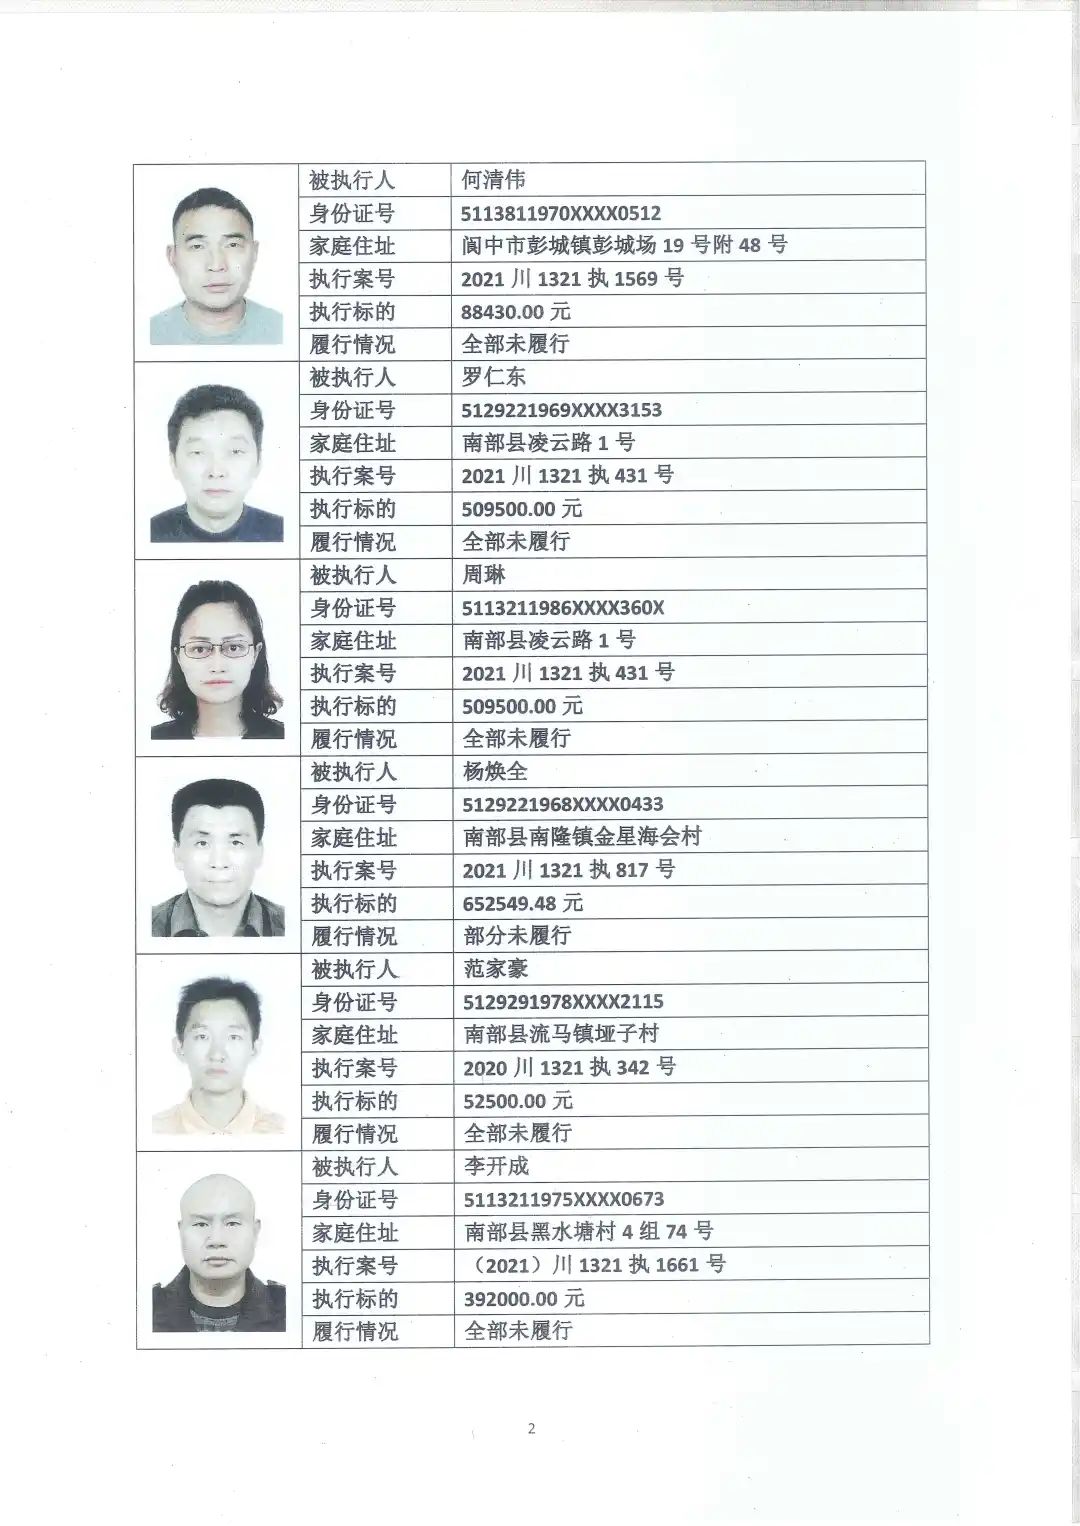 被执行人 何清伟
身份证号 5113811970XXXX0512
家庭住址 阆中市彭城镇彭城场 19 号附 48 号
执行案号 2021 川 1321 执 1569 号
执行标的 88430.00 元
履行情况 全部未履行
被执行人 罗仁东
身份证号 5129221969XXXX3153
家庭住址 南部县凌云路 1 号
执行案号 2021 川 1321 执 431 号
执行标的 509500.00 元
履行情况 全部未履行
被执行人 周琳
身份证号 5113211986XXXX360X
家庭住址 南部县凌云路 1 号
执行案号 2021 川 1321 执 431 号
执行标的 509500.00 元
履行情况 全部未履行
被执行人 杨焕全
身份证号 5129221968XXXX0433
家庭住址 南部县南隆镇金星海会村
执行案号 2021 川 1321 执 817 号
执行标的 652549.48 元
履行情况 部分未履行
被执行人 范家豪
身份证号 5129291978XXXX2115
家庭住址 南部县流马镇垭子村
执行案号 2020 川 1321 执 342 号
执行标的 52500.00 元
履行情况 全部未履行
被执行人 李开成
身份证号 5113211975XXXX0673
家庭住址 南部县黑水塘村 4 组 74 号
执行案号 （2021）川 1321 执 1661 号
执行标的 392000.00 元
履行情况 全部未履行
2